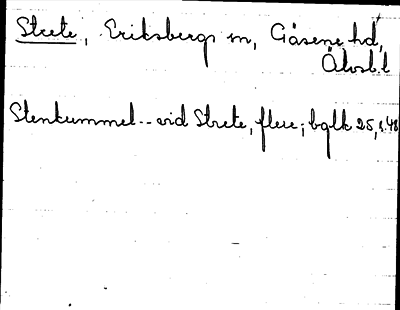 Strete, Eriksbergs sn, Gäsene hd,
Älvsb. l
Stenkummel -- vid Strete, flere; bglk 25, s. 48